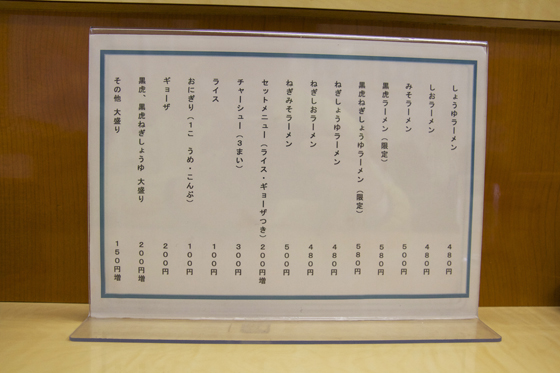 しょうゆラーメン 480円
しおラーメン 480円
みそラーメン 500円
黒虎ラーメン（限定） 580円
黒虎ねぎしょうゆラーメン（限定） 580円
ねぎしょうゆラーメン 480円
ねぎしおラーメン 480円
ねぎみそラーメン 500円
セットメニュー（ライス・ギョーザつき） 200円増
チャーシュー（3まい） 300円
ライス 100円
おにぎり（1こ うめ・こんぶ） 100円
ギョーザ 200円
黒虎、黒虎ねぎしょうゆ 大盛り 200円増
その他 大盛り 150円増